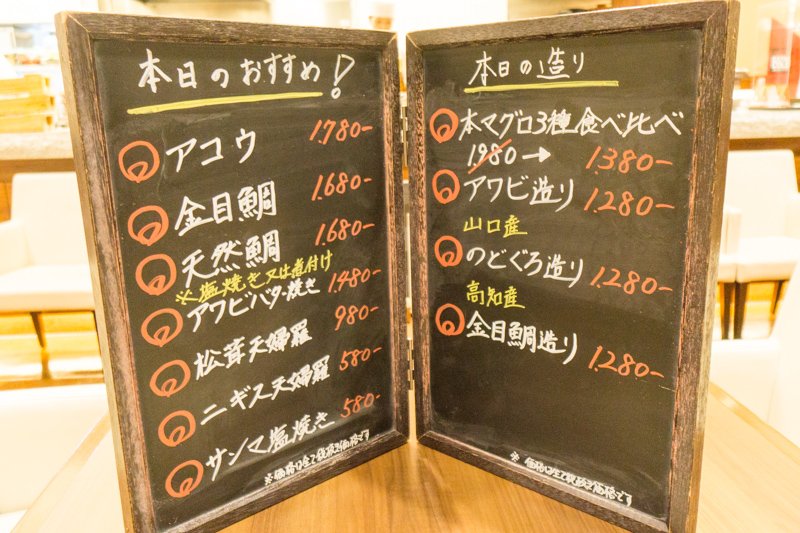 本日のおすすめ!
アコウ 1.780-
金目鯛 1.680-
天然鯛 1.680-
※塩焼き又は煮付け
アワビバター焼き 1.480-
松茸天婦羅 980-
ニギス天婦羅 580-
サンマ塩焼き 580-
※価格は全て税抜き価格です
本日の造り
本マグロ3種食べ比べ
1.980→ 1.380-
アワビ造り 1.280-
山口産
のどぐろ造り 1.280-
高知産
金目鯛造り 1.280-
※価格は全て税抜き価格です